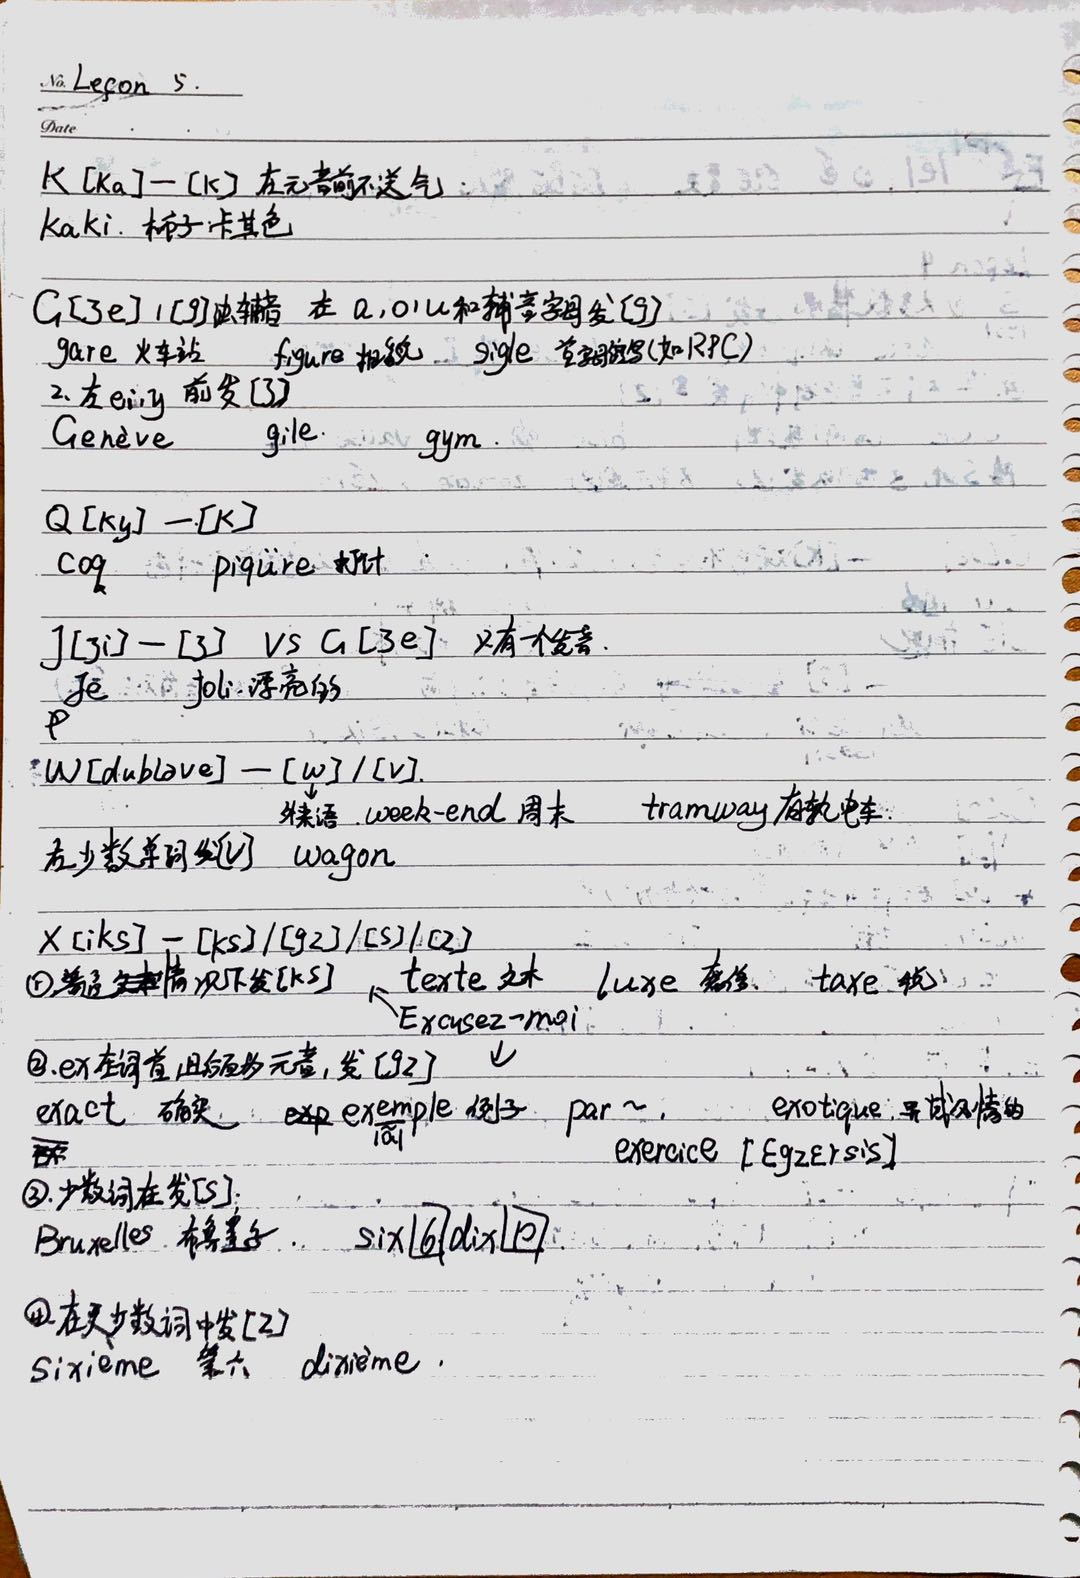 No. Leçon 5.
Date
K [Ka]—[K] 在元音前不送气.
Kaki. 柿子.卡其色
G[ʒe] 1.[g]浊辅音 在 a,o,u和辅音字母发[g]
gare 火车站 figure sigle 首字母缩写(如RPC)
2.在e,i,y 前发[ʒ]
Genève gile. gym.
Q [Ky] —[K]
coq piqüire 打针
J[ʒi]—[ʒ] VS G[ʒe] 只有一个发音.
Je Joli.漂亮的
P
W[dubləve] — [w]/[v].
外来语.week-end 周末 tramway 有轨电车.
在少数单词发[v] wagon
X [iks] — [ks]/[gz]/[s]/[z]
①.普通情况下发[ks] texte 文本 luxe 奢侈. taxe 税.
Excusez-moi
②.ex在词首,且后面为元音,发[gz]
exact 确实 exp exemple 例子 par ~, exotique.异域风情的
[ɑ̃] exercice [ɛgzɛrsis]
③.少数词在发[s].
Bruxelles 布鲁塞尔. six[6] dix[10].
④.在更少数词中发[z]
sixième 第六 dixième.